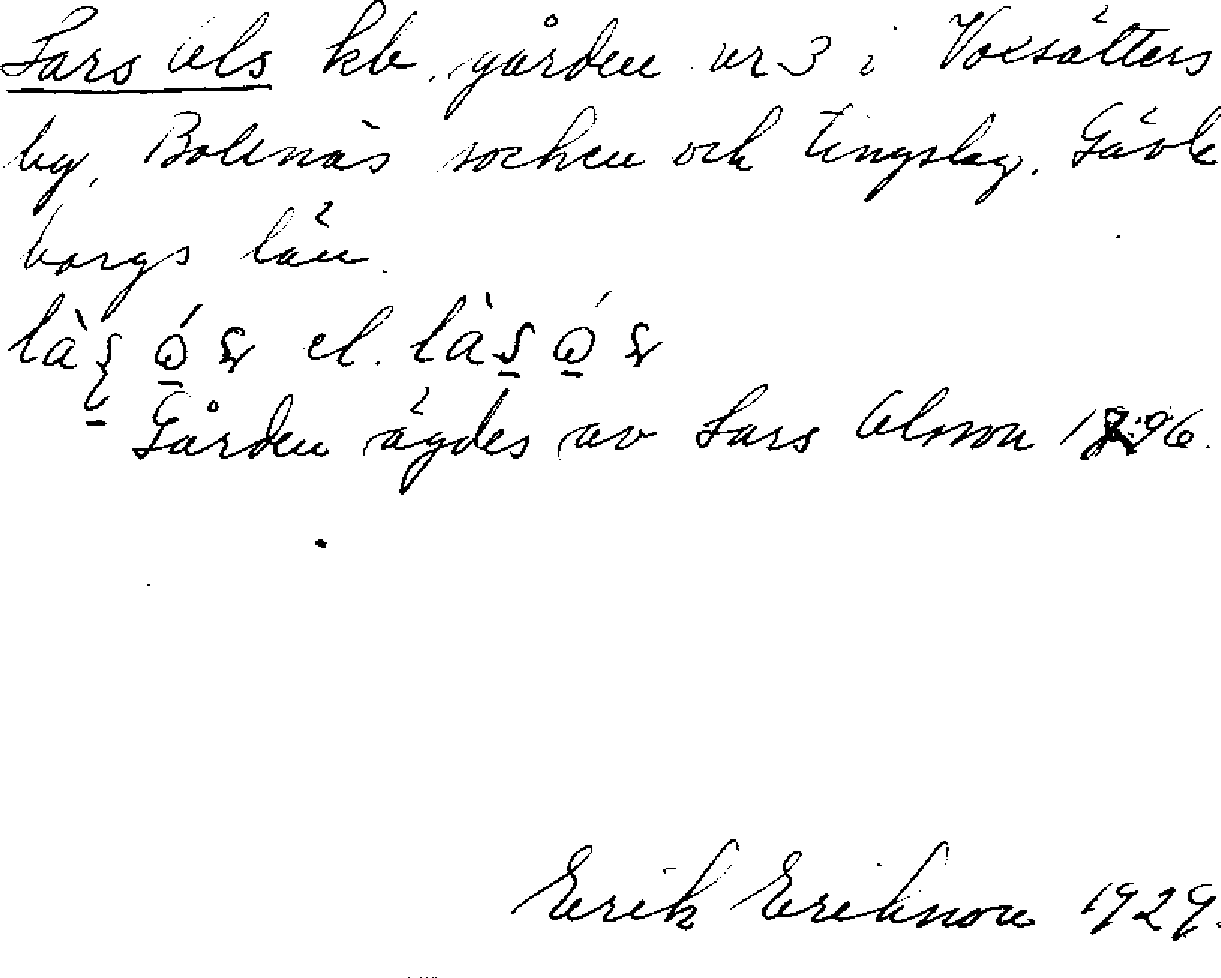 Lars Ols kb. gården nr 3 i Voxsätters
by, Bollnäs socken och tingslag, Gävle
borgs län.
el.
Gården ägdes av Lars Olsson
Erik Eriksson 1929.